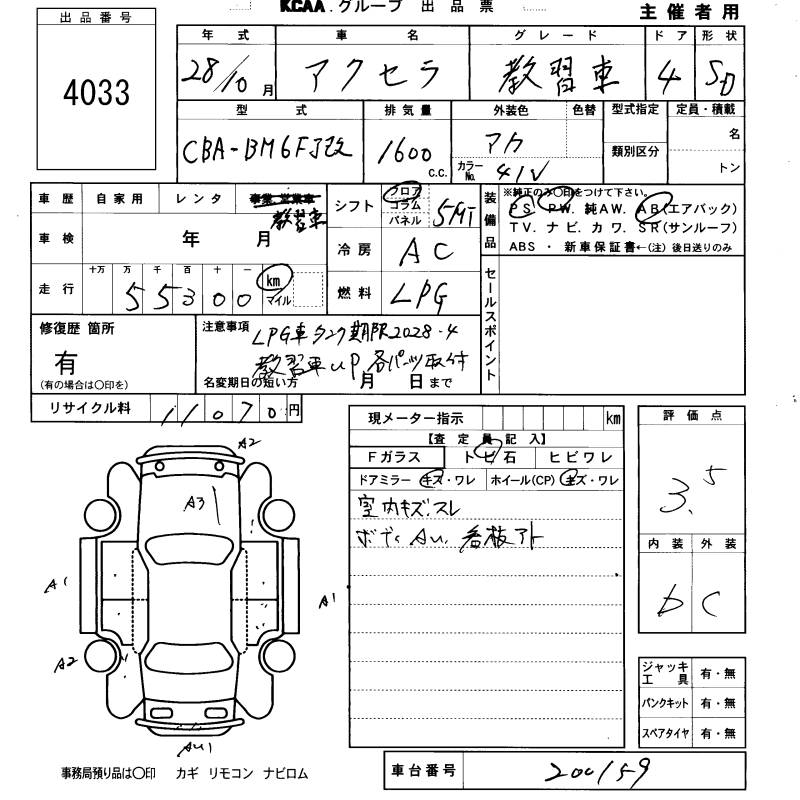 KCAA.グループ 出品票
主催者用
出品番号
4033
年式 車名 グレード ドア 形状
28/10月 アクセラ 教習車 4 SD
型式 排気量 外装色 色替 型式指定 定員・積載
CBA-BM6FJ改 1600 c.c. アカ 名
カラーNo. 41V 類別区分 トン
車歴 自家用 レンタ 事業.営業車 教習車
シフト フロア コラム パネル 5MT
装備品 ※純正のみ○印をつけて下さい。
PS. PW. 純AW. AB(エアバック)
TV. ナビ. カワ. SR(サンルーフ)
ABS ・ 新車保証書←(注) 後日送りのみ
車検 年 月
冷房 AC
走行 十万 万 千 百 十 一 km マイル
55300
燃料 LPG
セールスポイント
修復歴 箇所
有
(有の場合は○印を)
注意事項 LPG車タンク期限2028.4
教習車uP 各パーツ取付
名変期日の短い方 月 日まで
リサイクル料 11070円
現メーター指示 km
【査定員記入】
Fガラス トビ石 ヒビワレ
ドアミラー キズ・ワレ ホイール(CP) キズ・ワレ
室内キズ.スレ
ボディ AU. 看板アト
評価点
3.5
内装 外装
b C
A2
A3
A1
A1
A2
AU1
ジャッキ工具 有・無
パンクキット 有・無
スペアタイヤ 有・無
事務局預り品は○印 カギ リモコン ナビロム
車台番号 200159